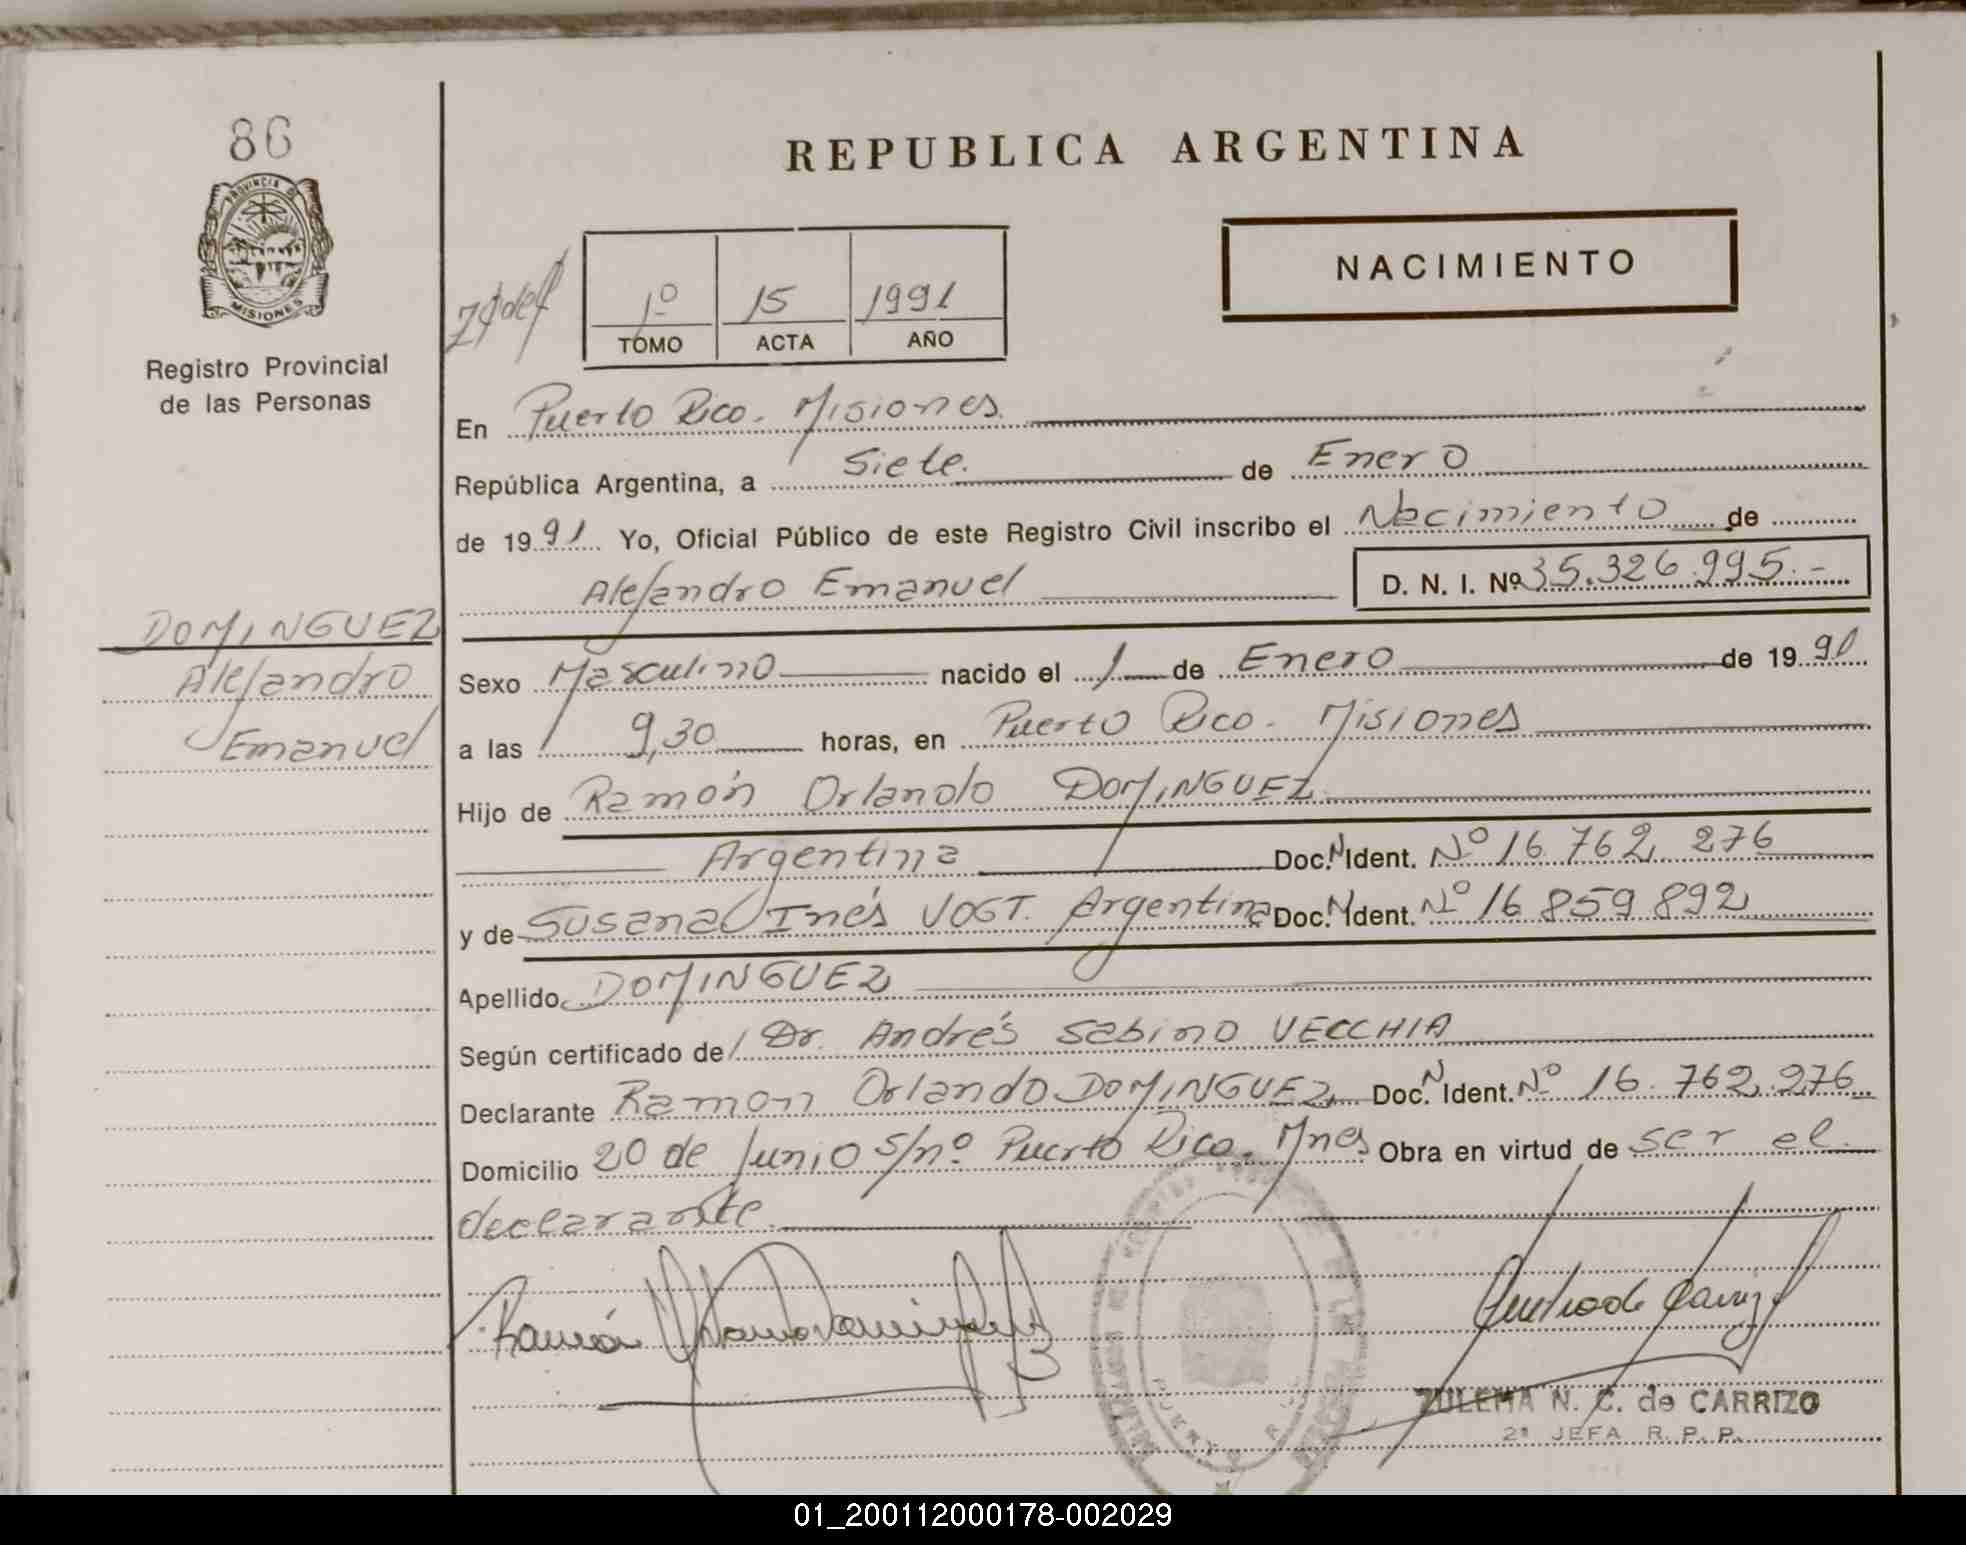 86
PROVINCIA DE
MISIONES
Registro Provincial
de las Personas
DOMINGUEZ
Alejandro
Emanuel
REPUBLICA ARGENTINA
NACIMIENTO
1º 15 1991
TOMO ACTA AÑO
En Puerto Rico. Misiones.
República Argentina, a Siete. de Enero
de 1991 Yo, Oficial Público de este Registro Civil inscribo el Nacimiento de
Alejandro Emanuel D. N. I. Nº 35.326.995.-
Sexo Masculino nacido el 1 de Enero de 1991
a las 9,30 horas, en Puerto Rico. Misiones
Hijo de Ramón Orlando DOMINGUEZ
Argentina Doc. N. Ident. Nº 16.762.276
y de Susana Inés VOGT. Argentina Doc. N. Ident. Nº 16 859 892
Apellido DOMINGUEZ
Según certificado de Dr. Andrés Sabino VECCHIA
Declarante Ramon Orlando DOMINGUEZ Doc. N. Ident. Nº 16.762.276
Domicilio 20 de Junio s/nº Puerto Rico. Mnes Obra en virtud de ser el
declarante.
Ramón
ZULEMA N. C. de CARRIZO
2ª JEFA R. P. P.
01_200112000178-002029